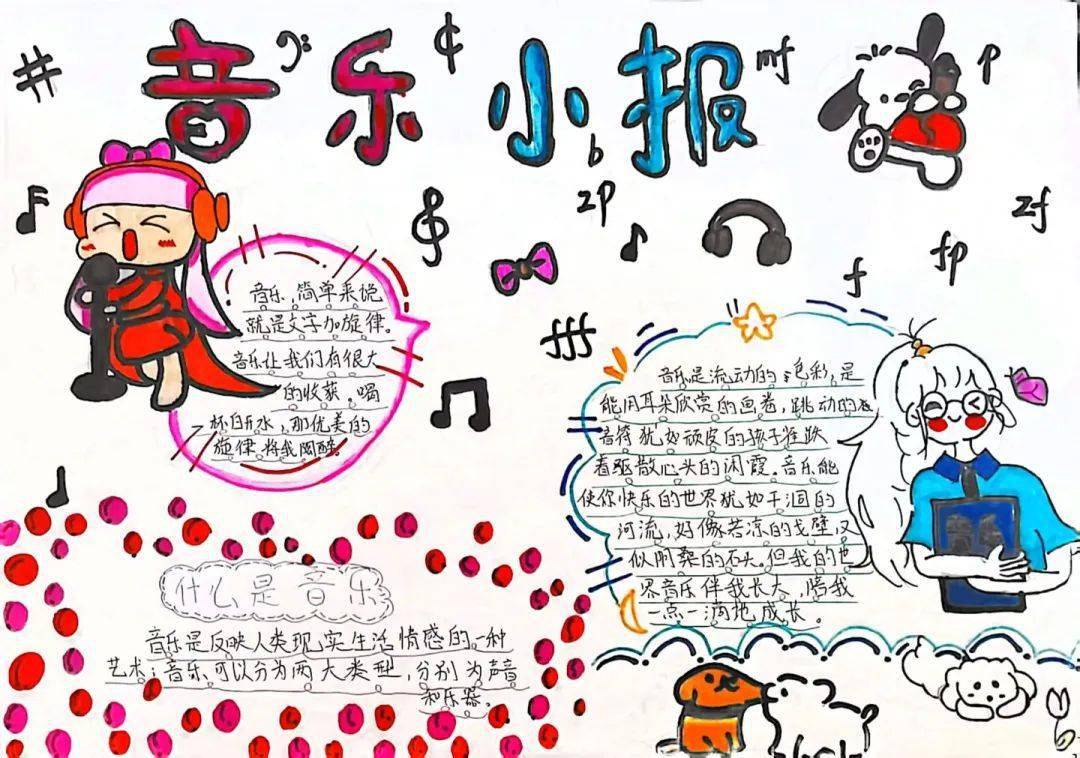 音乐小报
mf
p
b
zp
zf
fp
f
fff
音乐,简单来说
就是文字加旋律。
音乐让我们有很大
的收获。喝
杯白开水,那优美的
旋律将我陶醉。
音乐是流动的色彩,是
能用耳朵欣赏的画卷,跳动的
音符犹如顽皮的孩子
着驱散心头的闲霞。音乐能
使你快乐的世界犹如干涸的
河流,好像若凉的戈壁,又
似阴森的石头。但我的世
界音乐伴我长大,陪我
一点一滴地成长。
什么是音乐
音乐是反映人类现实生活情感的一种
艺术;音乐可以分为两大类型,分别为声音
和乐器。